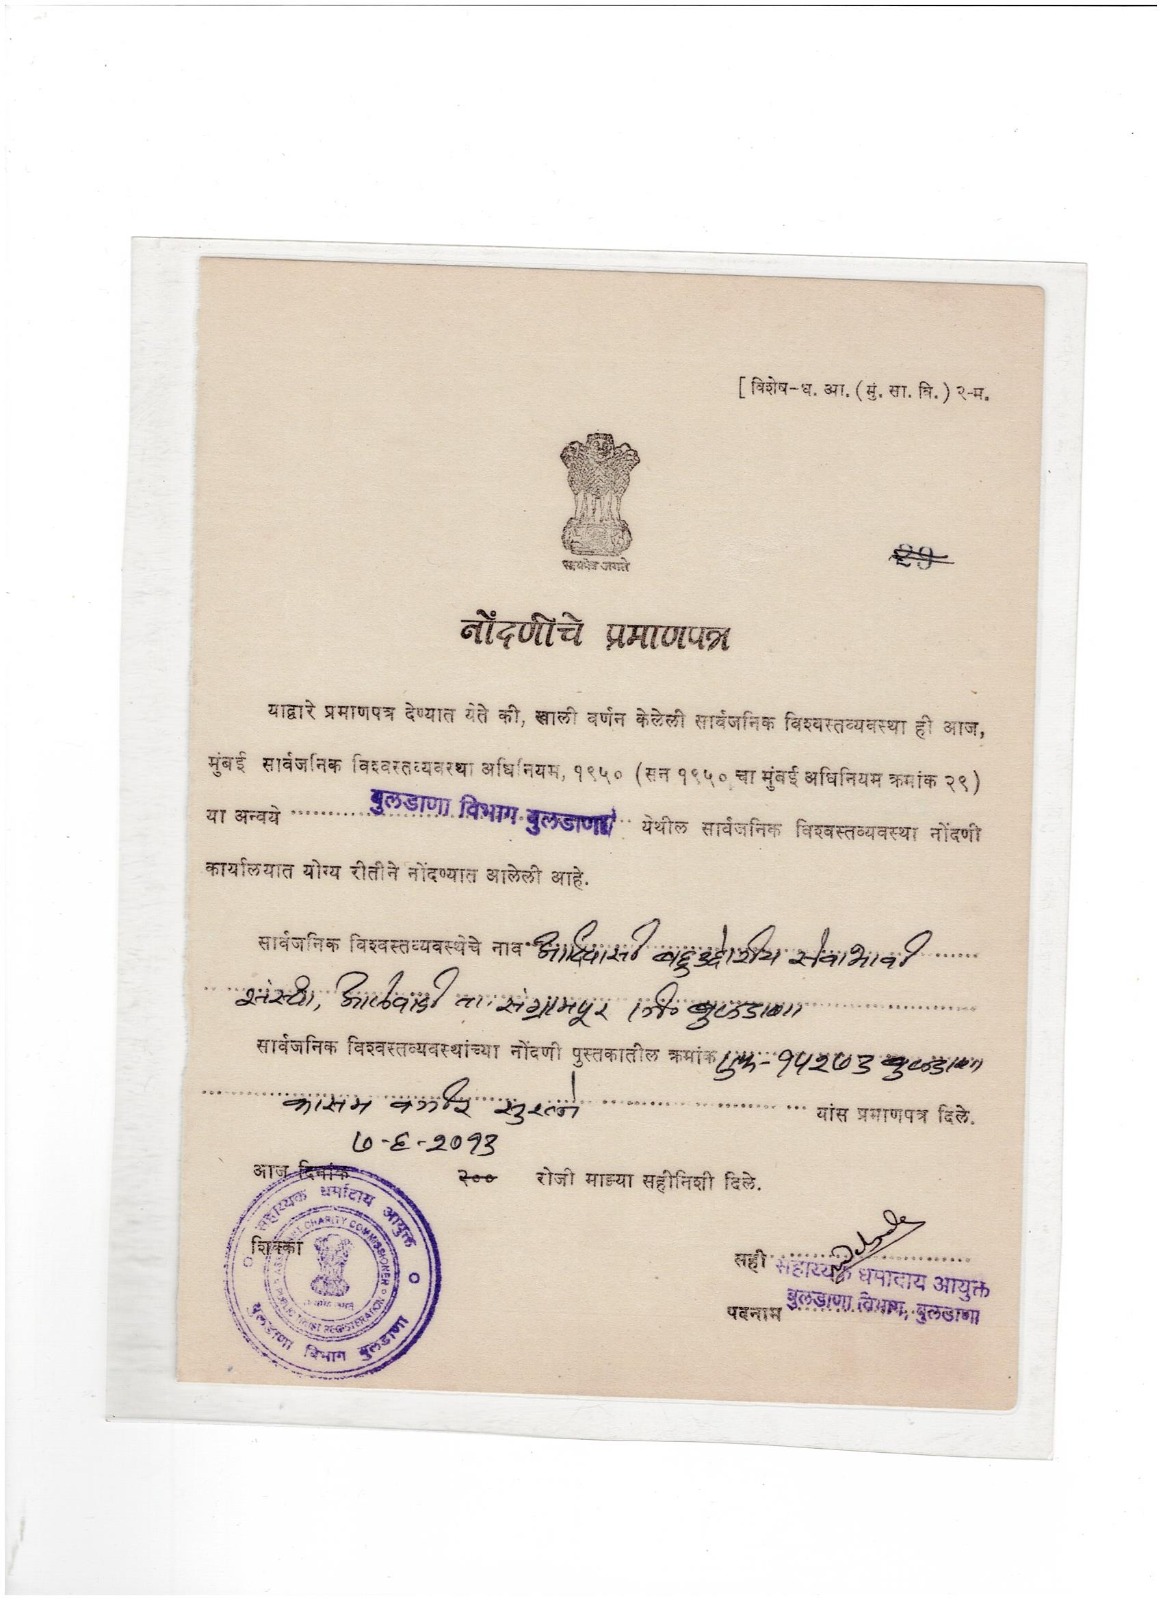 [ विशेष-ध. आ. (मुं. सा. वि.) २-म.
सत्यमेव जयते
29
नोंदणीचे प्रमाणपत्र
याद्वारे प्रमाणपत्र देण्यात येते की, खाली वर्णन केलेली सार्वजनिक विश्वस्तव्यवस्था ही आज,
मुंबई सार्वजनिक विश्वस्तव्यवस्था अधिनियम, १९५० (सन १९५० चा मुंबई अधिनियम क्रमांक २९)
या अन्वये बुलडाणा विभाग बुलडाणा येथील सार्वजनिक विश्वस्तव्यवस्था नोंदणी
कार्यालयात योग्य रीतीने नोंदण्यात आलेली आहे.
सार्वजनिक विश्वस्तव्यवस्थेचे नाव आदिवासी बहुउद्देशीय सेवाभावी
संस्था, आलेवाडी ता. संग्रामपूर जि. बुलडाणा
सार्वजनिक विश्वस्तव्यवस्थांच्या नोंदणी पुस्तकातील क्रमांक एफ-१५२७३ बुलडाणा
कासम वजीर सुरत्ने यांस प्रमाणपत्र दिले.
७-६-२०१३
आज दिनांक २०० रोजी माझ्या सहीनिशी दिले.
शिक्का
सहाय्यक धर्मादाय आयुक्त
बुलडाणा विभाग बुलडाणा
ASSTT. CHARITY COMMISSIONER
PUBLIC TRUST REGISTERATION
सही सहाय्यक धर्मादाय आयुक्त
पदनाम बुलडाणा विभाग, बुलडाणा